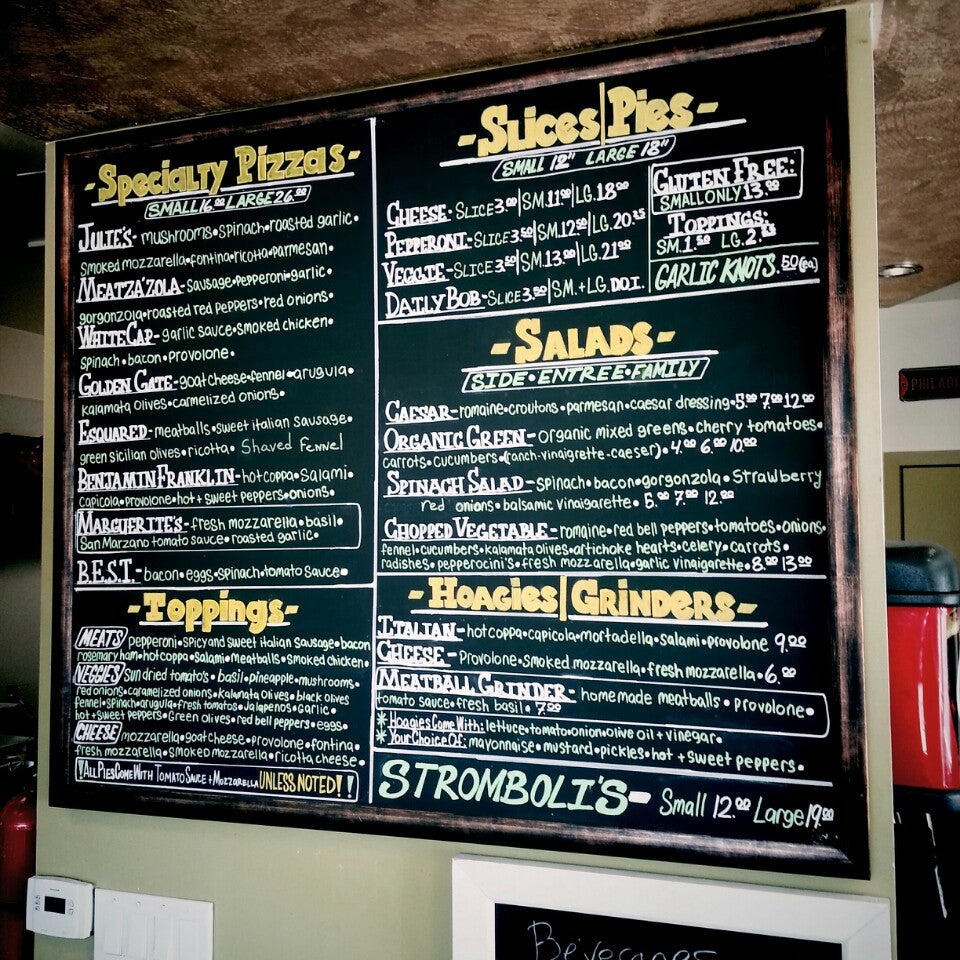 -Specialty Pizzas-
SMALL 16.00 LARGE 26.00
JULIE'S- mushrooms•spinach•roasted garlic•
Smoked mozzarella•fontina•ricotta•parmesan•
MEATZA'ZOLA-sausage•pepperoni•garlic•
gorgonzola•roasted red peppers•red onions•
WHITE CAP- garlic sauce•smoked chicken•
spinach•bacon•provolone•
GOLDEN GATE-goat cheese•fennel•arugula•
kalamata olives•carmelized onions•
ESQUARED-meatballs•sweet italian sausage•
green sicilian olives•ricotta• Shaved Fennel
BENJAMIN FRANKLIN-hot coppa•Salami•
capicola•provolone•hot + sweet peppers•onions•
MARGUERITE'S-fresh mozzarella•basil•
San Marzano tomato sauce•roasted garlic•
B.E.S.T.-bacon•eggs•spinach•tomato sauce•
-Toppings-
MEATS pepperoni•spicy and sweet italian sausage•bacon
rosemary ham•hot coppa•salami•meatballs•smoked chicken•
VEGGIES Sun dried tomato's•basil•pineapple•mushrooms•
red onions•caramelized onions•kalamata olives•black olives
fennel•spinach•arugula•fresh tomatos•Jalapenos•Garlic•
hot + sweet peppers•Green olives•red bell peppers•eggs•
CHEESE mozzarella•goat cheese•provolone•fontina•
fresh mozzarella•smoked mozzarella•ricotta cheese•
!ALL PIES COME WITH TOMATO SAUCE + MOZZARELLA UNLESS NOTED!!
-Slices|Pies-
SMALL 12" LARGE 18"
CHEESE-SLICE 3.00|SM.11.00|LG.18.00
PEPPERONI-SLICE 3.50|SM.12.50|LG.20.25
VEGGIE-SLICE 3.50|SM.13.00|LG.21.00
DAILY BOB-SLICE 3.50|SM.+LG.D.O.I.
GLUTEN FREE:
SMALL ONLY 13.00
TOPPINGS:
SM.1.50 LG.2.25
GARLIC KNOTS .50(ea)
-SALADS-
SIDE•ENTREE•FAMILY
CAESAR-romaine•croutons•parmesan•caesar dressing•5.00 7.00 12.00
ORGANIC GREEN-organic mixed greens•cherry tomatoes•
carrots•cucumbers•(ranch-vinaigrette-caeser)•4.00 6.00 10.00
SPINACH SALAD-spinach•bacon•gorgonzola•Strawberry
red onions•balsamic vinaigarette• 5.00 7.00 12.00
CHOPPED VEGETABLE-romaine•red bell peppers•tomatoes•onions•
fennel•cucumbers•kalamata olives•artichoke hearts•celery•carrots•
radishes•pepperocini's•fresh mozzarella•garlic vinaigarette•8.00 13.00
-HOAGIES|GRINDERS-
ITALIAN-hot coppa•capicola•mortadella•salami•provolone 9.00
CHEESE-Provolone•smoked mozzarella•fresh mozzarella•6.00
MEATBALL GRINDER-homemade meatballs•provolone•
tomato sauce•fresh basil•7.00
*Hoagies Come With: lettuce•tomato•onion•olive oil+vinegar•
*Your Choice Of: mayonnaise•mustard•pickles•hot + sweet peppers•
STROMBOLI'S- Small 12.00 Large 19.00
Beverages